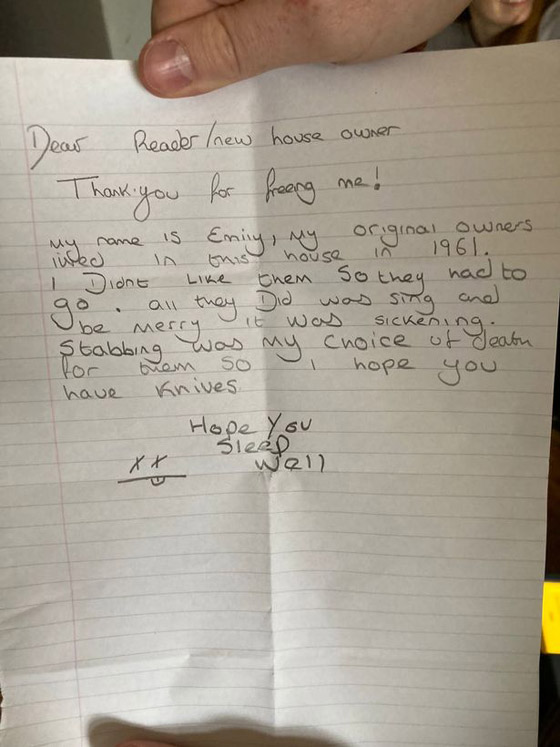 Dear Reader/new house owner
Thank you for freeing me!
My name is Emily, My original owners
lived in this house in 1961.
I Didnt Like them So they had to
go. all they Did was sing and
be merry it was sickening.
Stabbing was my choice of death
for them So I hope you
have Knives
Hope You
Sleep
Well
XX